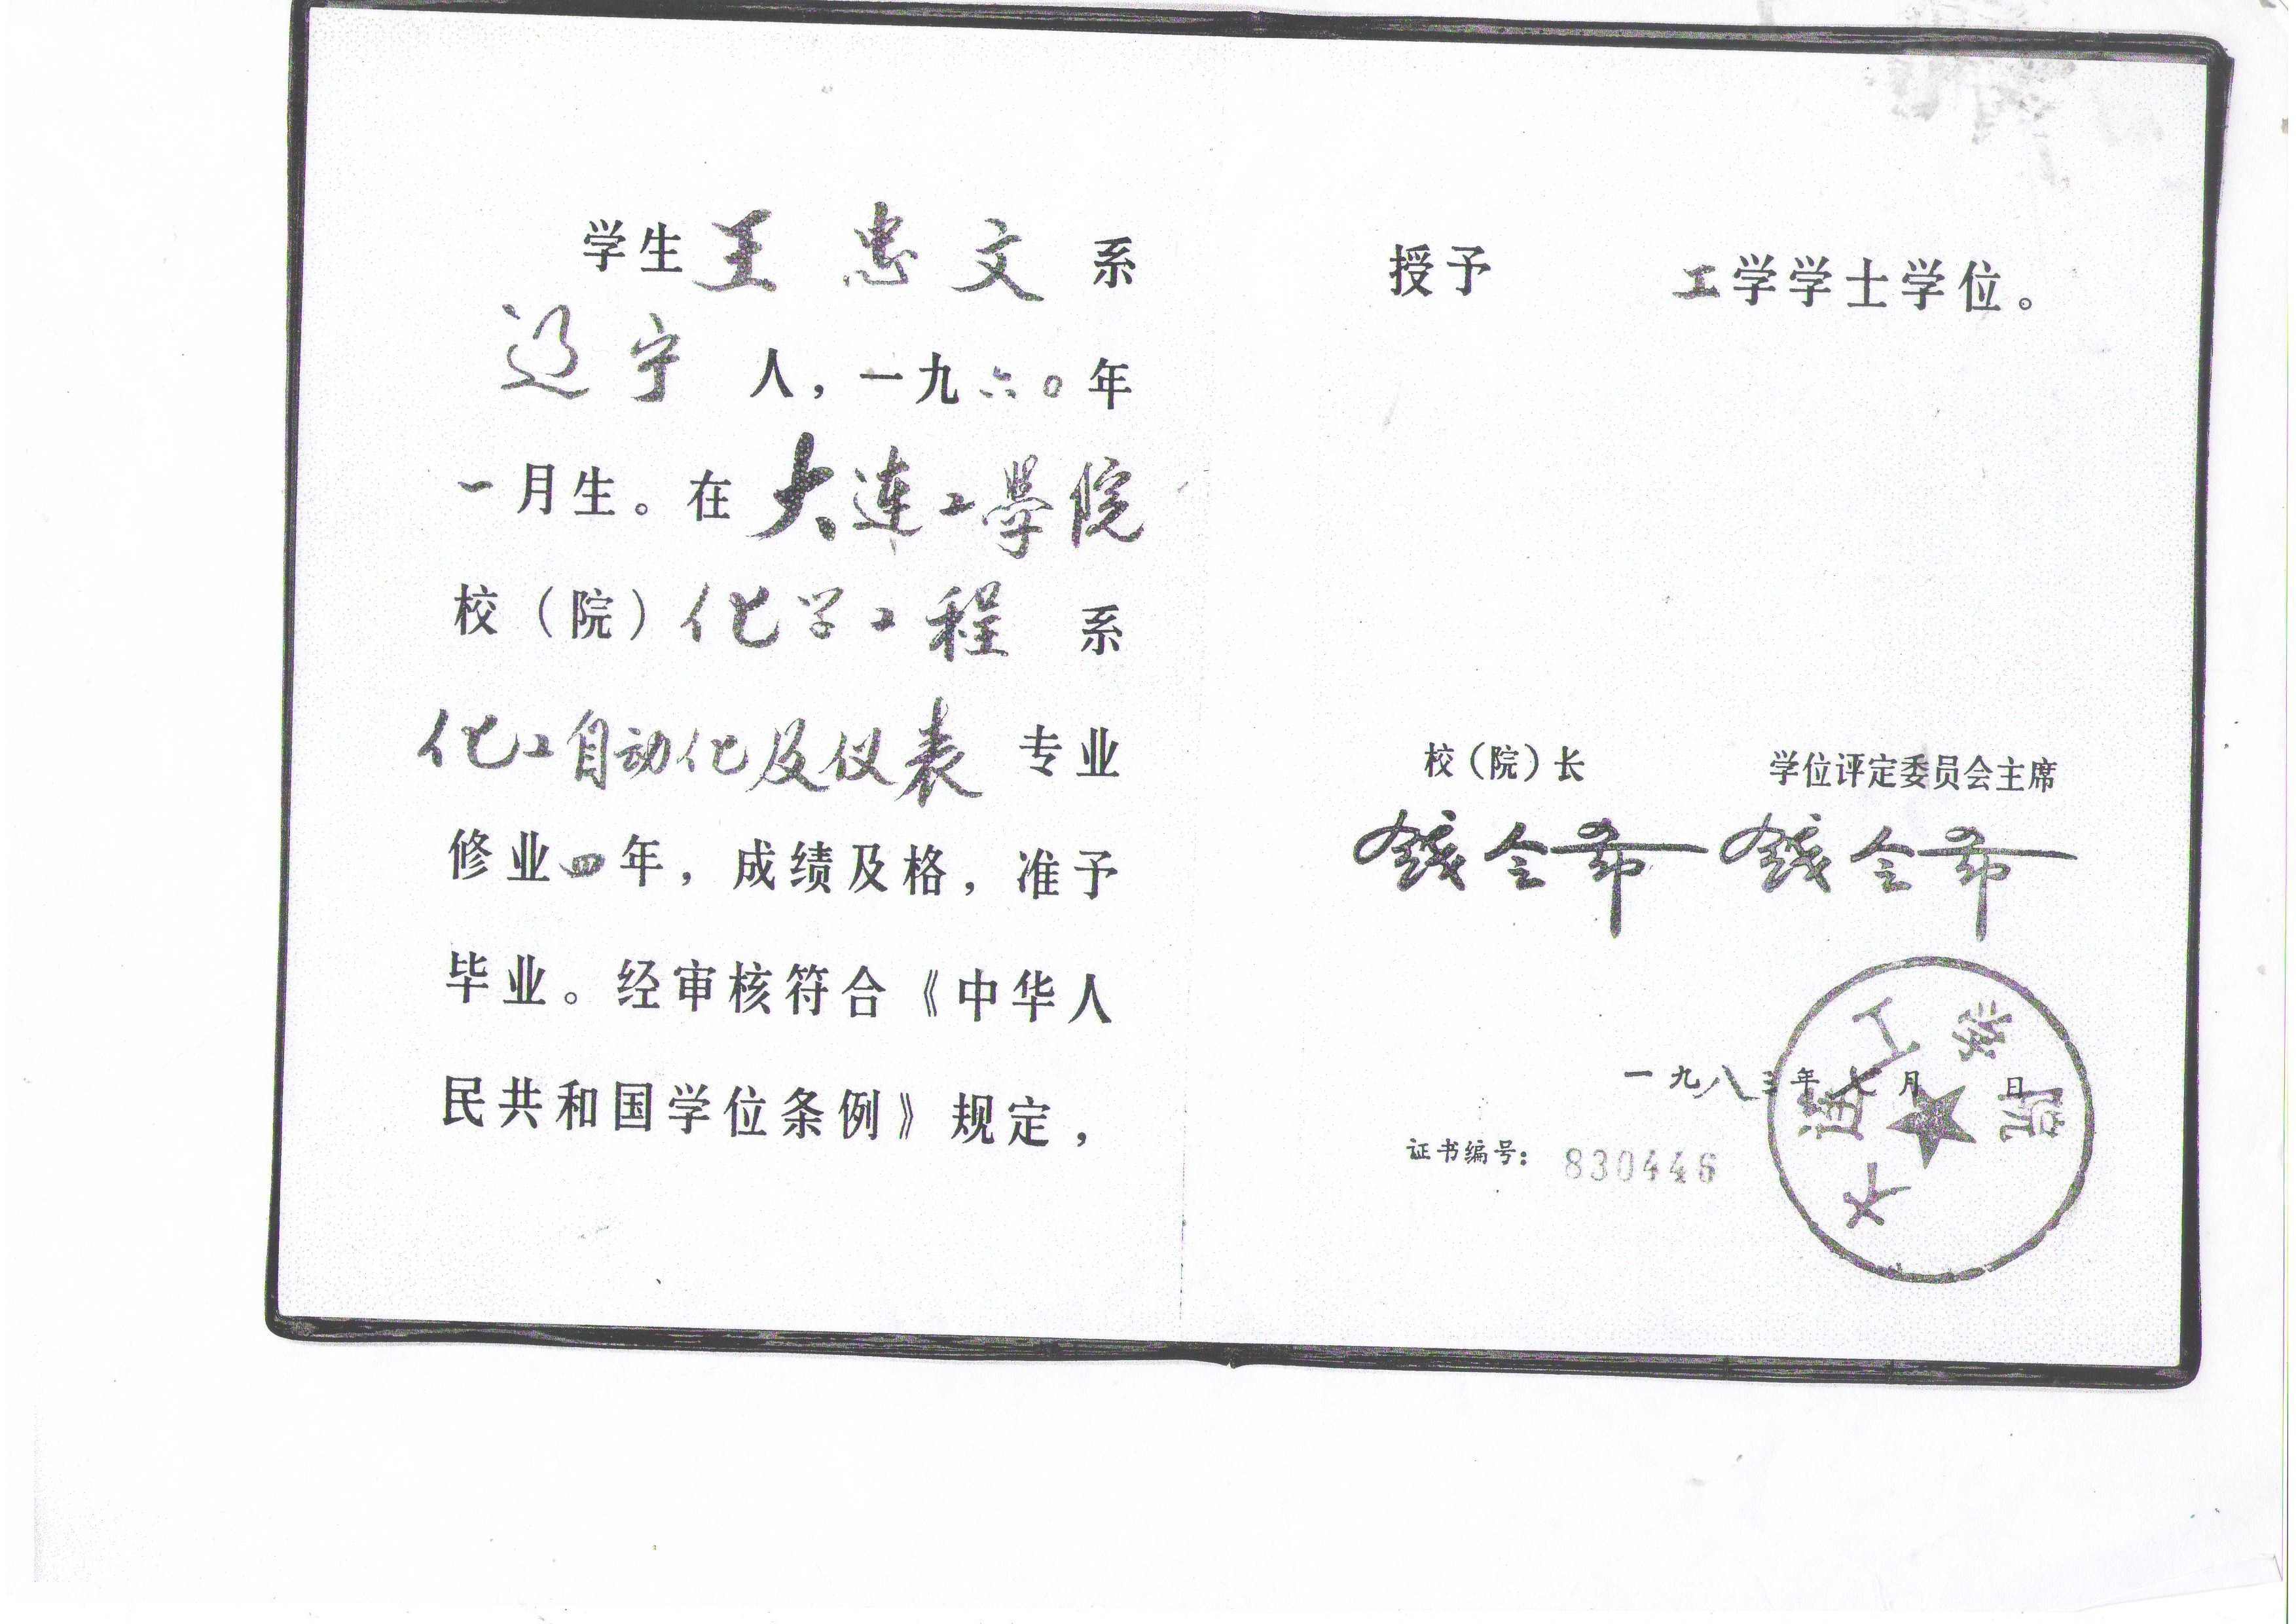 学生王忠文系
辽宁人，一九六〇年
一月生。在大连工學院
校（院）化学工程系
化工自动化及仪表专业
修业四年，成绩及格，准予
毕业。经审核符合《中华人
民共和国学位条例》规定，
授予 工学学士学位。
校（院）长 学位评定委员会主席
钱令希 钱令希
一九八三年七月 日
证书编号：830446
大连工学院